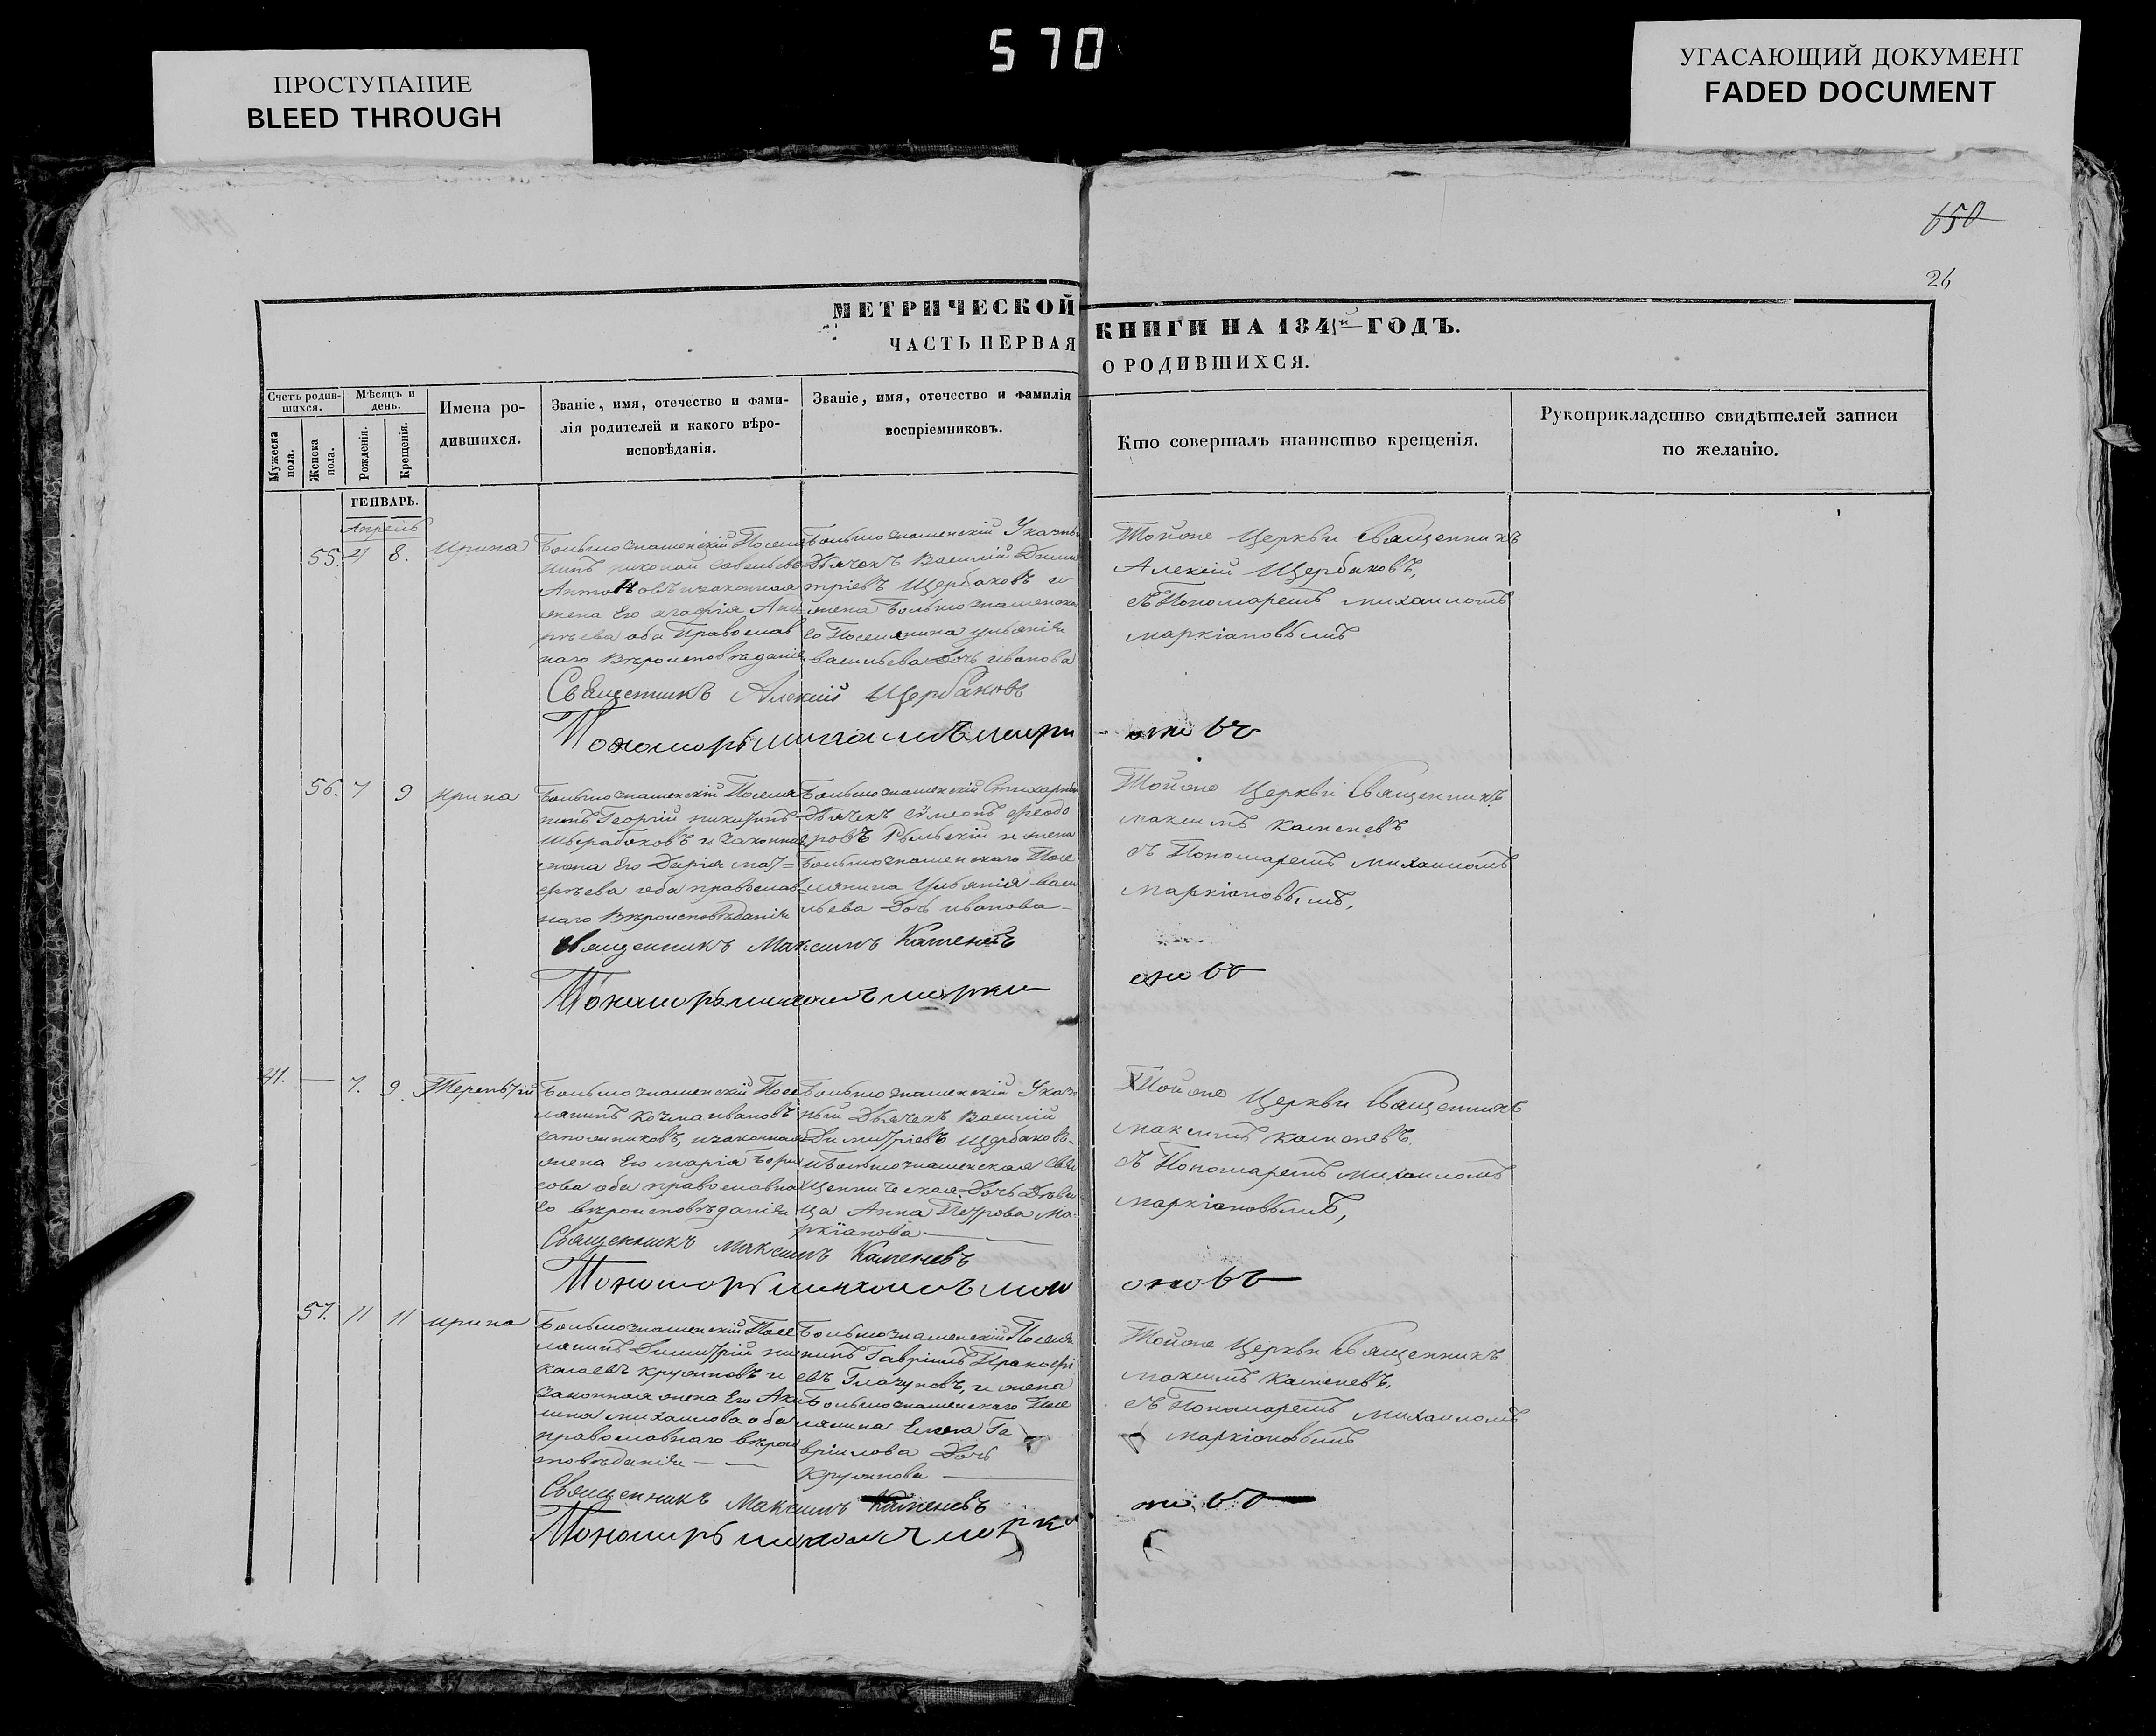 570
ПРОСТУПАНИЕ
BLEED THROUGH
УГАСАЮЩИЙ ДОКУМЕНТ
FADED DOCUMENT
650
26
МЕТРИЧЕСКОЙ КНИГИ НА 184 ГОДЪ.
ЧАСТЬ ПЕРВАЯ О РОДИВШИХСЯ.
Счетъ родив-
шихся.
Мужеска пола.
Женска пола.
Мѣсяцъ и
день.
Рожденія.
Крещенія.
Имена ро-
дившихся.
Званіе, имя, отечество и фами-
лія родителей и какого вѣро-
исповѣданія.
Званіе, имя, отечество и фамилія
воспріемниковъ.
Кто совершалъ таинство крещенія.
Рукоприкладство свидѣтелей записи
по желанію.
ГЕНВАРЬ.
Апрель
55. 4 8. Ирина
Большознаменскій Поселя
нинъ Николай Савельевъ
Антоновъ и законная
жена Его Агафія
оба Православ
наго Вѣроисповѣданія
Большознаменскій Указный
Дьячекъ Василій Дими
тріевъ Щербаковъ и
жена Большознаменска
го Поселянина Ульянія
Васильева Дочь Иванова
Тойже Церкви Священникъ
Алексій Щербаковъ,
съ Пономаремъ Михаиломъ
Маркіановымъ
Священникъ Алексій Щербаковъ
Пономарь Михаилъ Марки
ановъ
56. 7 9 Ирина
Большознаменскій Поселя
нинъ Георгій Никитинъ
и законная
жена Его Дарія Мат=
ѳеева оба православ
наго Вѣроисповѣданія
Большознаменскій Стихарный
Дьячекъ Сѵмеонъ Феодо
ровъ Рыльскій и жена
Большознаменскаго Посе
лянина Ульянія Васи
льева Дочь Иванова
Тойже Церкви Священникъ
Максимъ Каменевъ
съ Пономаремъ Михаиломъ
Маркіановымъ,
Священникъ Максимъ Каменевъ
Пономарь Михаилъ Марки
ановъ
41. — 7. 9. Терентій
Большознаменскій Посе
лянинъ Козма Ивановъ
Сапожниковъ, и законная
жена Его Марія Бори
сова оба православна
го вѣроисповѣданія
Большознаменскій Указ
ный Дьячекъ Василій
Димитріевъ Щербаковъ
и Большознаменская Свя
щенническая Дочь Дѣви
ца Анна Петрова Ма
ркіанова
Тойже Церкви Священникъ
Максимъ Каменевъ.
съ Пономаремъ Михаиломъ
Маркіановымъ,
Священникъ Максимъ Каменевъ
Пономарь Михаилъ
ановъ
57. 11 11 Ирина
Большознаменскій Посе
лянинъ Димитрій Ни
колаевъ Кружновъ и
законная жена Его Аки
лина Михаилова оба
православнаго вѣрои
споведанія
Большознаменскій Поселя
нинъ Гавріилъ Прокофі
евъ Глазуновъ, и жена
Большознаменскаго Посе
лянина Елена Га
вріилова Дочь
Кружнова
Тойже Церкви Священникъ
Максимъ Каменевъ,
съ Пономаремъ Михаиломъ
Маркіановымъ
Священникъ Максимъ Каменевъ
Пономарь Михаилъ Марки
ановъ